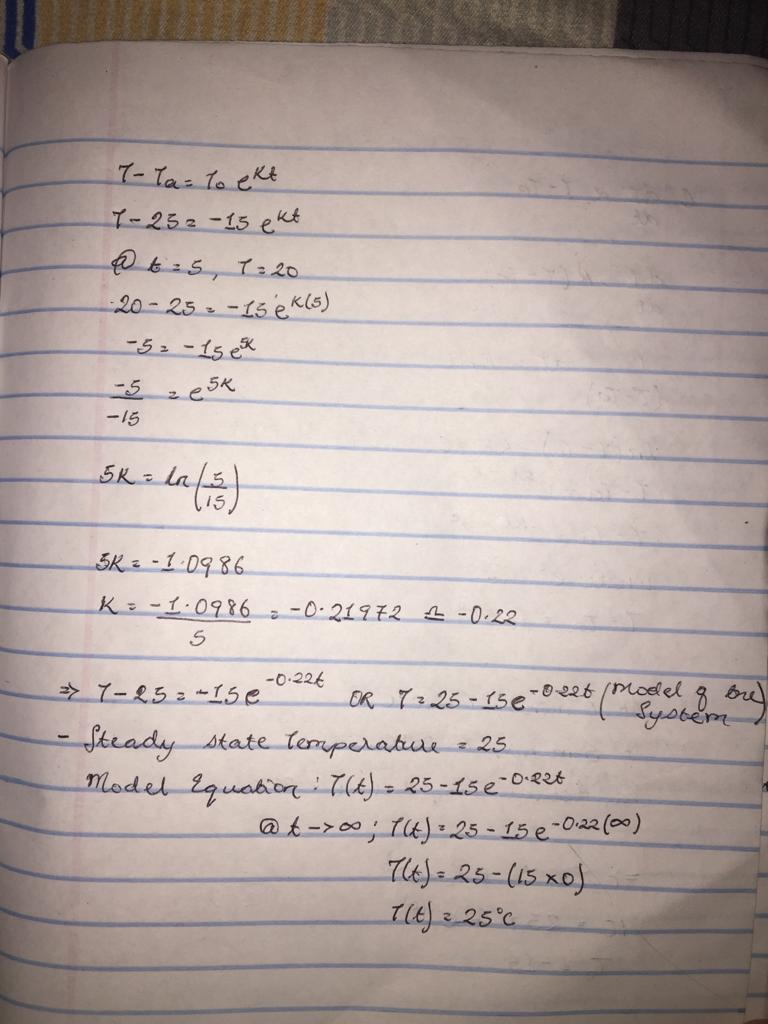 T - Ta = To e^Kt
T - 25 = -15 e^Kt
@ t = 5, T = 20
20 - 25 = -15 e^K(5)
-5 = -15 e^5K
-5/-15 = e^5K
5K = ln(5/15)
5K = -1.0986
K = -1.0986/5 = -0.21972 ≏ -0.22
⇒ T - 25 = -15e^-0.22t OR T = 25 - 15e^-0.22t (Model of the System)
- Steady state Temperature = 25
Model Equation : T(t) = 25 - 15e^-0.22t
@ t -> ∞ ; T(t) = 25 - 15e^-0.22(∞)
T(t) = 25 - (15 x 0)
T(t) = 25°C